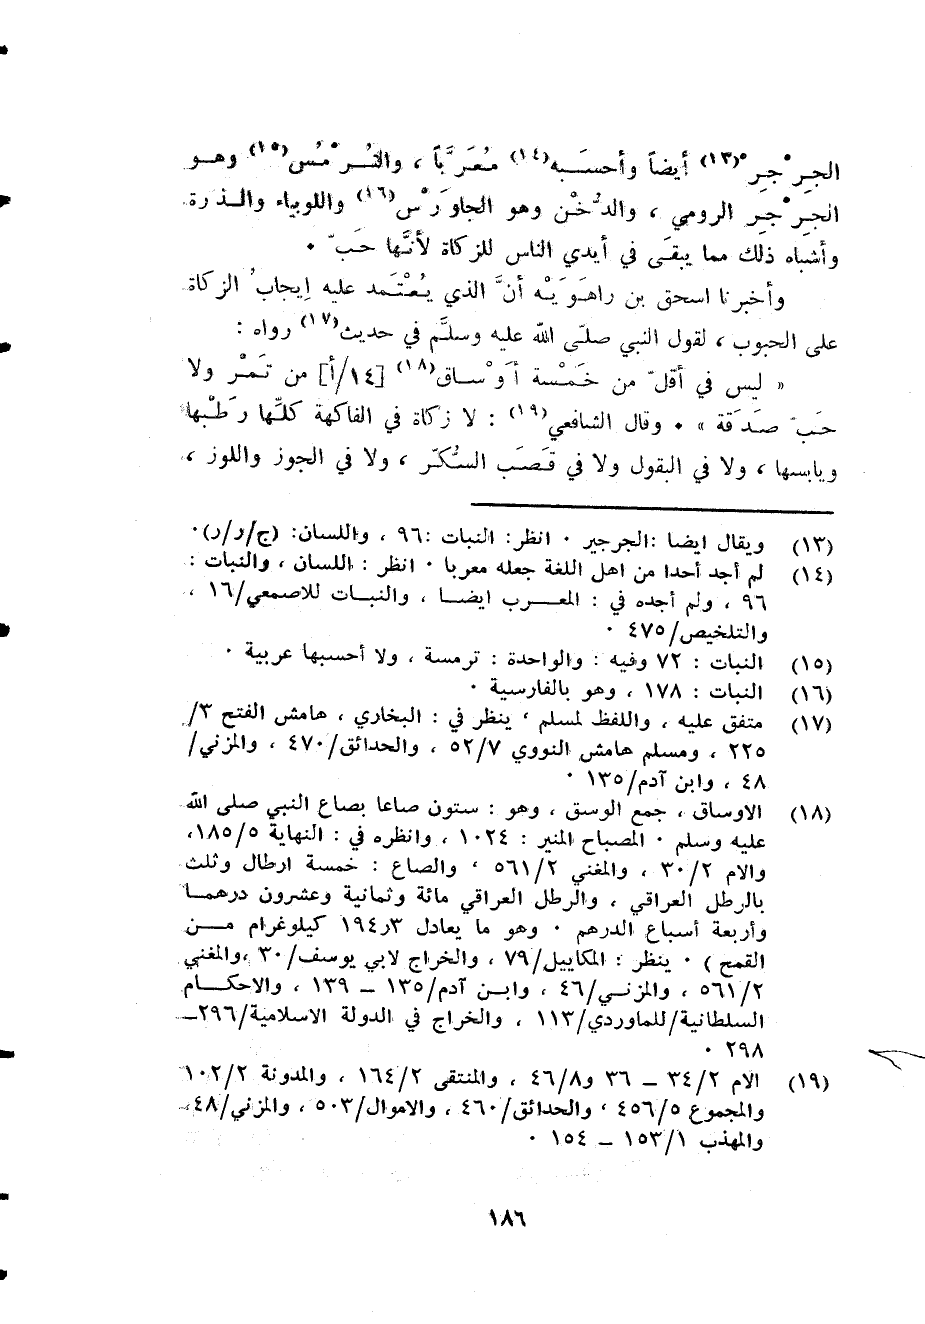 الجِرْجِرْ(١٣) أيضاً وأحسَبه(١٤) مُعَرَّباً ، والتُرْمُس(١٥) وهــو
الجِرْجِر الرومي ، والدُخْن وهو الجاوَرْس(١٦) واللوبياء والـذرة
وأشباه ذلك مما يبقَى في أيدي الناس للزكاة لأنَّها حَبّ .
وأخبرنا اسحق بن راهَوَيْه أنَّ الذي يُعْتَمد عليه إيجابُ الزكاة
على الحبوب ، لقول النبي صلّى الله عليه وسلَّم في حديث(١٧) رواه :
« ليس في أقلّ من خَمْسة أوْساق(١٨) [١٤/أ] من تَمْر ولا
حَبّ صَدَقة » . وقال الشافعي(١٩) : لا زكاة في الفاكهة كلّها رَطْبها
ويابسها ، ولا في البقول ولا في قَصَب السُكّر ، ولا في الجوز واللوز ،
(١٣) ويقال ايضا :الجرجير . انظر: النبات :٩٦ ، واللسان: (ج/ر/ر).
(١٤) لم أجد أحدا من اهل اللغة جعله معربا . انظر : اللسان ، والنبات :
٩٦ ، ولم أجده في : المعــرب ايضـا ، والنبـات للاصمعي/١٦ ،
والتلخيص/٤٧٥ .
(١٥) النبات : ٧٢ وفيه : والواحدة : ترمسة ، ولا أحسبها عربية .
(١٦) النبات : ١٧٨ ، وهو بالفارسية .
(١٧) متفق عليه ، واللفظ لمسلم ، ينظر في : البخاري ، هامش الفتح ٣/
٢٢٥ ، ومسلم هامش النووي ٥٢/٧ ، والحدائق/٤٧٠ ، والمزني/
٤٨ ، وابن آدم/١٣٥ .
(١٨) الاوساق ، جمع الوسق ، وهو : ستون صاعا بصاع النبي صلى الله
عليه وسلم . المصباح المنير : ١٠٢٤ ، وانظره في : النهاية ١٨٥/٥،
والام ٣٠/٢ ، والمغني ٥٦١/٢ ، والصاع : خمسة ارطال وثلث
بالرطل العراقي ، والرطل العراقي مائة وثمانية وعشرون درهمـا
وأربعة أسباع الدرهم . وهو ما يعادل ١٩٤ر٣ كيلوغرام مــن
القمح ) . ينظر : المكاييل/٧٩ ، والخراج لابي يوسف/٣٠ ،والمغني
٥٦١/٢ ، والمزنـي/٤٦ ، وابـن آدم/١٣٥ – ١٣٩ ، والاحكـام
السلطانية/للماوردي/١١٣ ، والخراج في الدولة الاسلامية/٢٩٦–
٢٩٨ .
(١٩) الام ٣٤/٢ – ٣٦ و٤٦/٨ ، والمنتقى ١٦٤/٢ ، والمدونة ١٠٢/٢
والمجموع ٤٥٦/٥ ، والحدائق/٤٦٠ ، والاموال/٥٠٣ ، والمزني/٤٨،
والمهذب ١٥٣/١ – ١٥٤ .
١٨٦